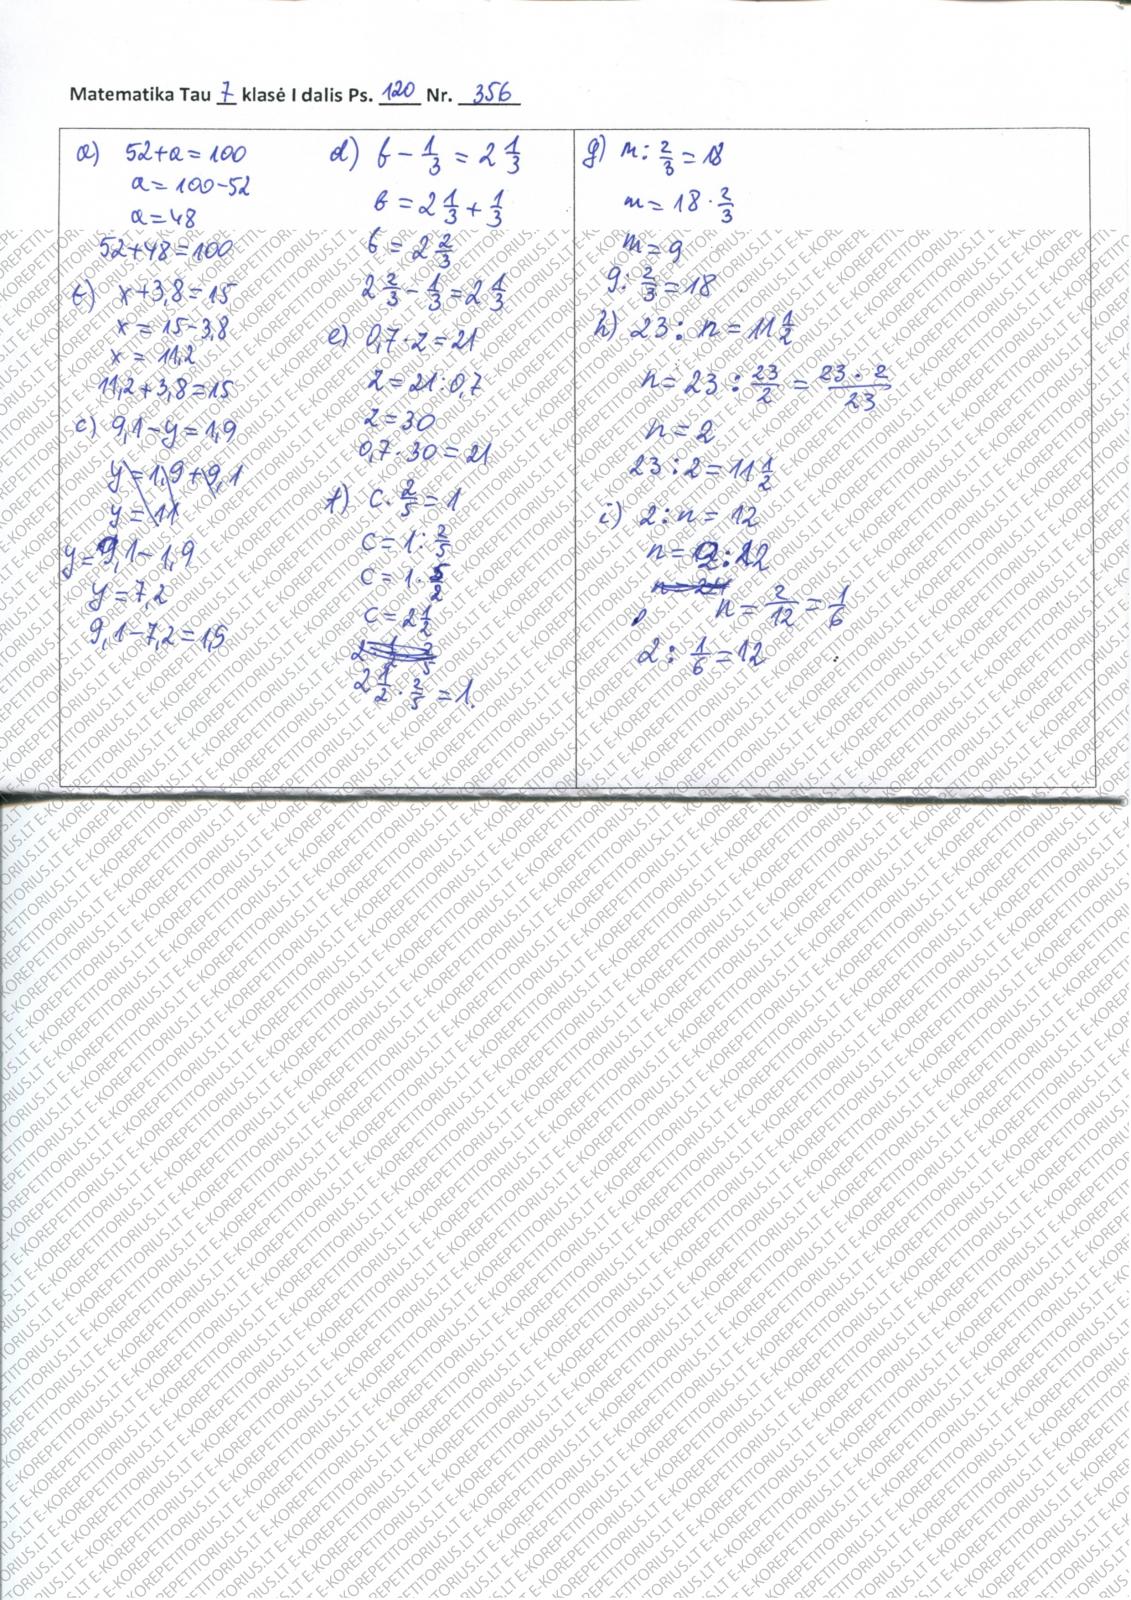 Matematika Tau 7 klasė I dalis Ps. 120 Nr. 356
a) 52+a=100
a=100-52
a=48
52+48=100
b) x+3,8=15
x=15-3,8
x=11,2
11,2+3,8=15
c) 9,1-y=1,9
y=1,9+9,1
y=11
y=9,1-1,9
y=7,2
9,1-7,2=1,9
d) b - 1/3 = 2 1/3
b = 2 1/3 + 1/3
b = 2 2/3
2 2/3 - 1/3 = 2 1/3
e) 0,7·z=21
z=21:0,7
z=30
0,7·30=21
f) c · 2/5 = 1
c = 1 : 2/5
c = 1 · 5/2
c = 2 1/2
2 1/2 · 2/5 = 1.
g) m : 2/3 = 18
m = 18 · 2/3
m = 9
9 : 2/3 = 18
h) 23 : n = 11 1/2
n = 23 : 23/2 = 23·2/23
n = 2
23 : 2 = 11 1/2
i) 2 : n = 12
n = 2:12
n=24
n = 2/12 = 1/6
2 : 1/6 = 12
E-KOREPETITORIUS.LT